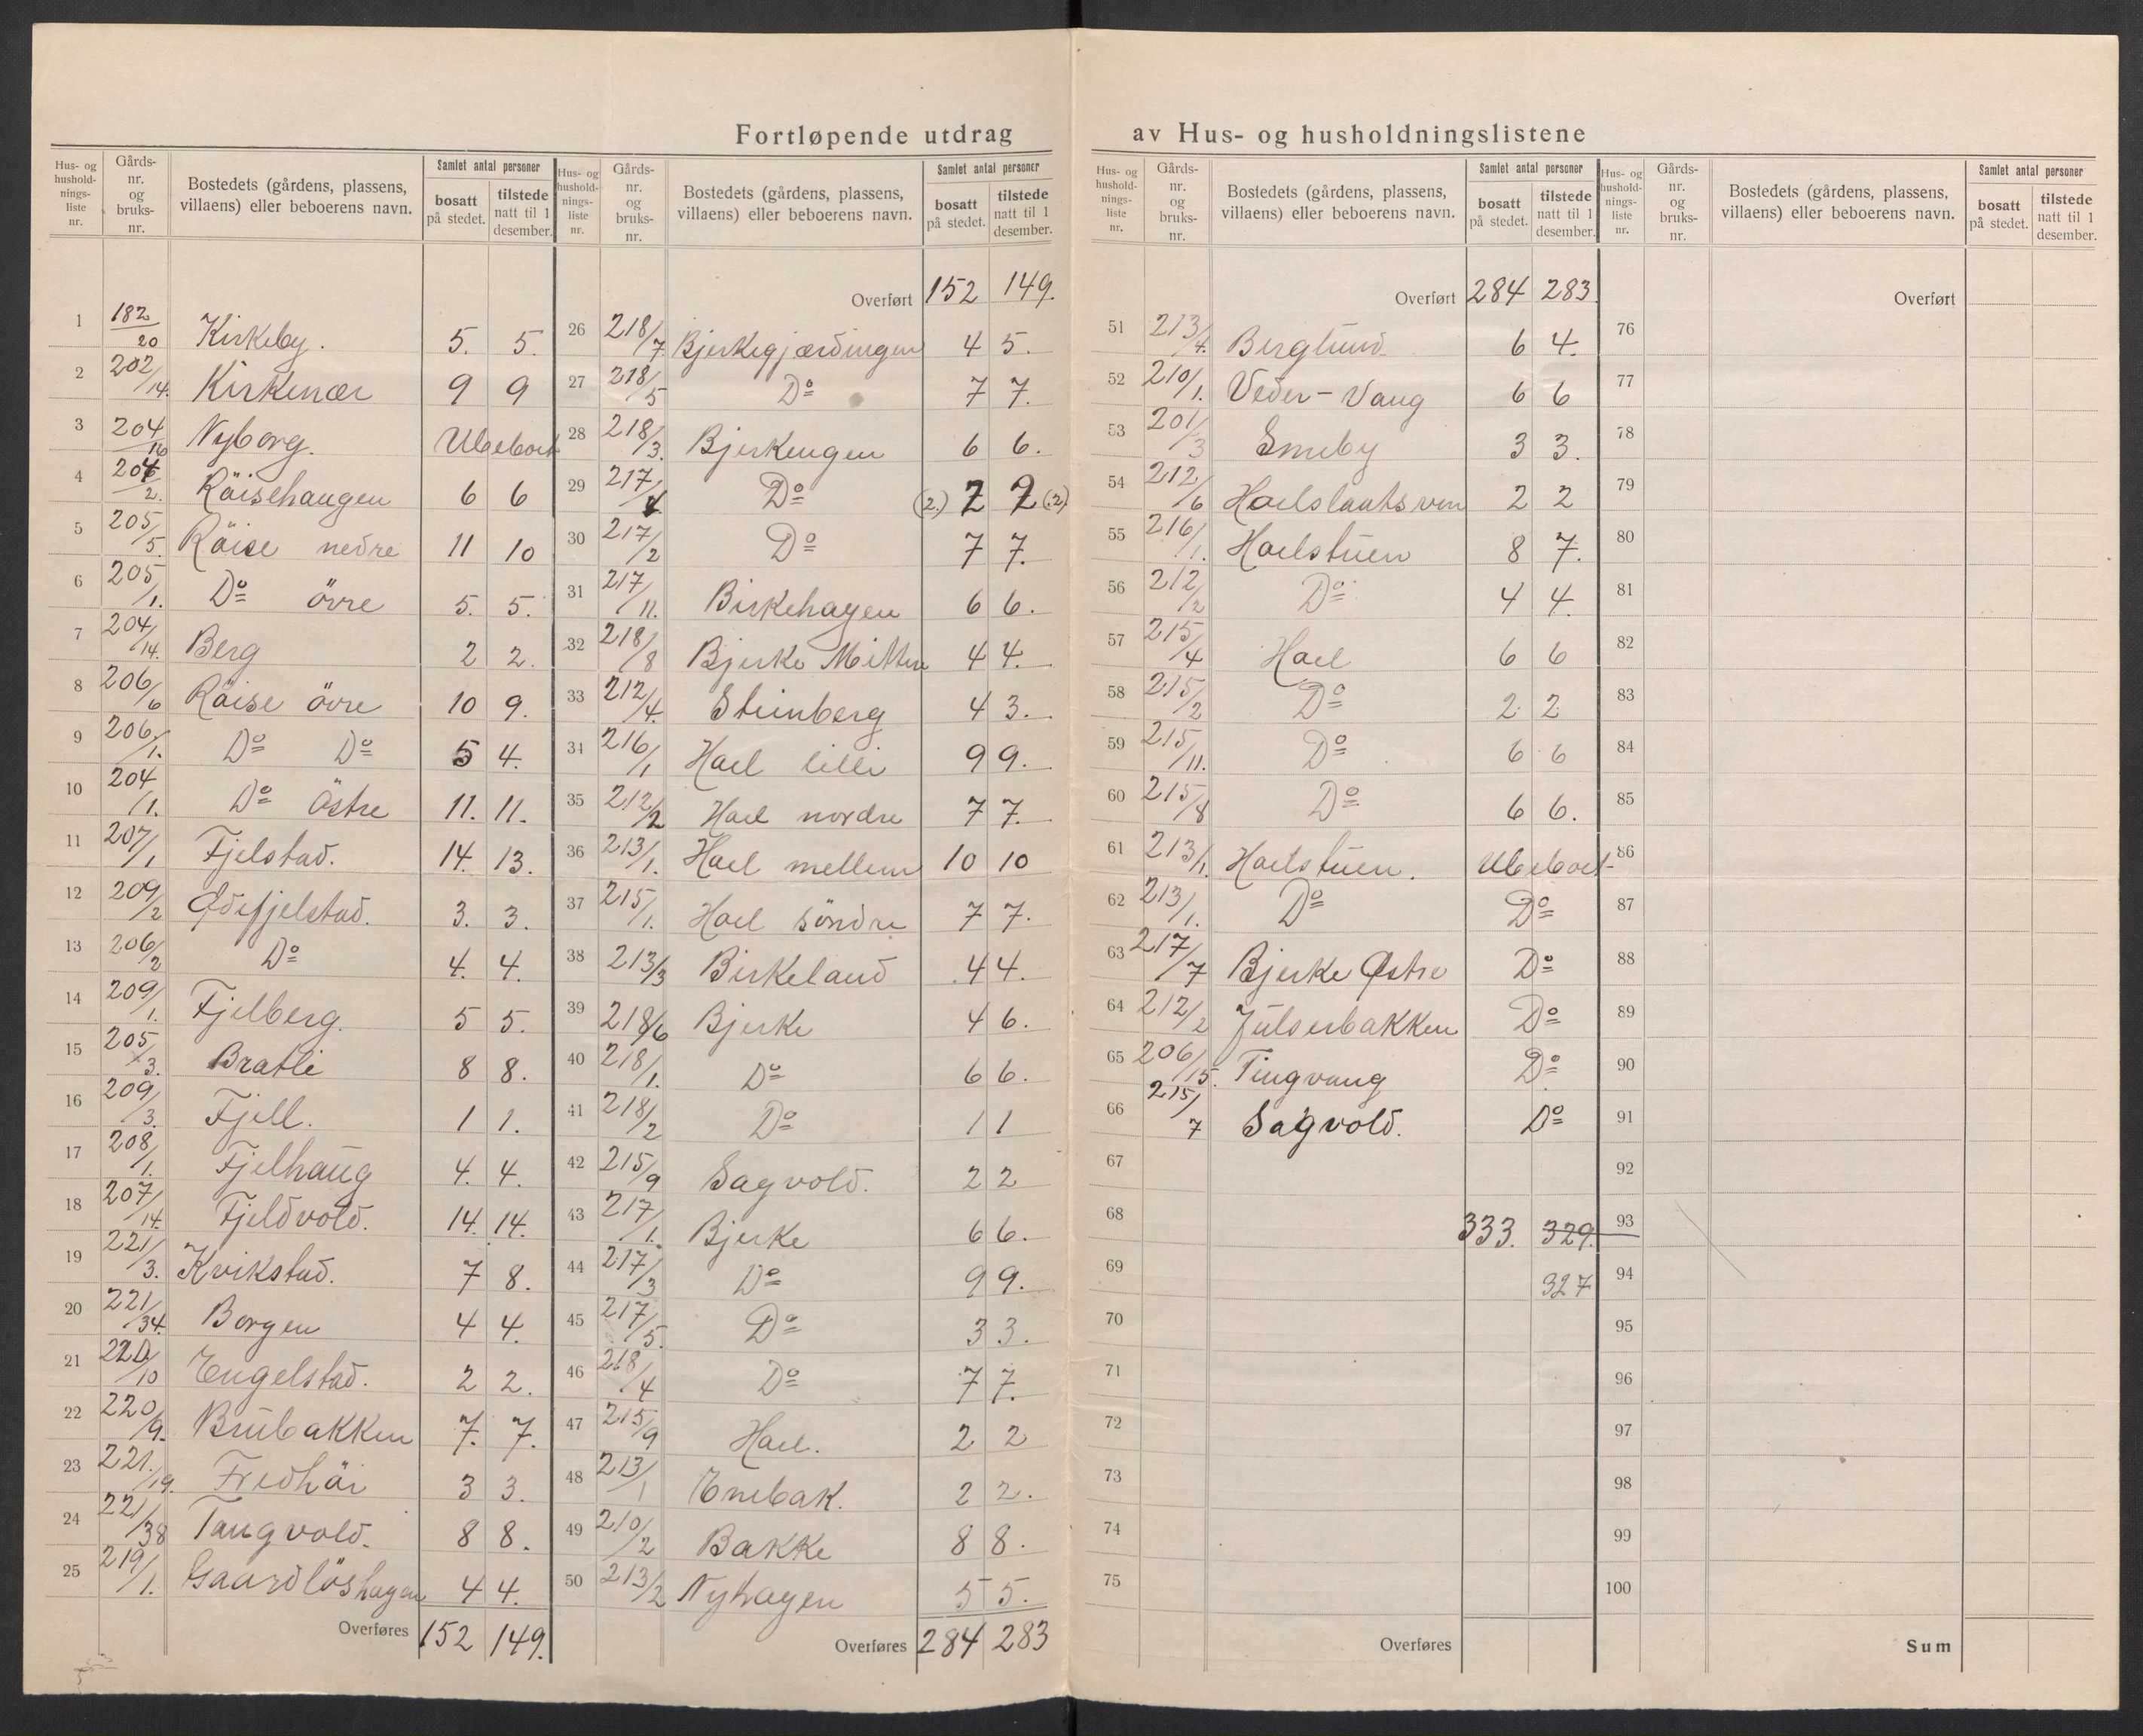 Fortløpende utdrag av Hus- og husholdningslistene
Hus- og husholdnings-liste nr. | Gårds-nr. og bruks-nr. | Bostedets (gårdens, plassens, villaens) eller beboerens navn. | Samlet antal personer | bosatt på stedet. | tilstede natt til 1 desember.
1 182/20 Kirkeby. 5. 5.
2 202/14. Kirkenær 9 9
3 204/16 Nyborg. Ubeboet
4 204/2. Röisehaugen 6 6
5 205/5. Röise nedre 11 10
6 205/1. Do övre 5. 5.
7 204/14. Berg 2 2.
8 206/6 Röise övre 10 9.
9 206/1. Do Do 5 4.
10 204/1. Do Östre 11. 11.
11 207/1 Fjelstad. 14. 13.
12 209/2 Ødefjelstad. 3. 3.
13 206/2 Do 4. 4.
14 209/1. Fjelberg. 5 5.
15 205/3. Bratli 8 8.
16 209/3. Fjell. 1 1.
17 208/1. Fjelhaug 4. 4.
18 207/14. Fjeldvold. 14. 14.
19 221/3. Kvikstad. 7 8.
20 221/34. Borgen 4 4.
21 220/10 Engelstad. 2 2.
22 220/9. Brubakken 7. 7.
23 221./19. Fredhöi 3 3.
24 221/38 Tangvold. 8 8.
25 219/1. Gaardlöshagen 4 4.
Overføres 152 149.
Hus- og husholdnings-liste nr. | Gårds-nr. og bruks-nr. | Bostedets (gårdens, plassens, villaens) eller beboerens navn. | Samlet antal personer | bosatt på stedet. | tilstede natt til 1 desember.
Overført 152 149.
26 218/7 Bjerkegjærdingen 4 5.
27 218/5 Do 7 7.
28 218/3. Bjerkengen 6 6.
29 217/4 Do (2.) 2 2 (2)
30 217/2 Do 7 7.
31 217/11. Birkehagen 6 6.
32 218/8 Bjerke Mittre 4 4.
33 212/4. Steinberg 4 3.
34 216/1 Hoel lille 9 9.
35 212/2 Hoel nordre 7 7.
36 213/1. Hoel mellem 10 10
37 215/1. Hoel söndre 7 7.
38 213/3 Birkeland 4 4.
39 218/6 Bjerke 4 6.
40 218/1. Do 6 6.
41 218/2 Do 1 1
42 215/9 Sagvold. 2 2
43 217/1. Bjerke 6 6.
44 217/3 Do 9 9.
45 217/5. Do 3 3.
46 218/4 Do 7 7.
47 215/9 Hoel. 2 2
48 213/1 Enebak. 2 2.
49 210/2 Bakke 8 8.
50 213/2 Nyhagen 5 5.
Overføres 284 283
Hus- og husholdnings-liste nr. | Gårds-nr. og bruks-nr. | Bostedets (gårdens, plassens, villaens) eller beboerens navn. | Samlet antal personer | bosatt på stedet. | tilstede natt til 1 desember.
Overført 284 283.
51 213/4. Berglund 6 4.
52 210/1. Veder-Vang 6 6
53 201/3 Smeby 3 3.
54 212/6 2 2
55 216/1. Hoelstuen 8 7.
56 212/2 Do 4 4.
57 215/4 Hoel 6 6
58 215/2 Do 2 2
59 215/11. Do 6 6
60 215/8 Do 6 6.
61 213/1. Hoelstuen. Ubeboet
62 213/1. Do Do
63 217/7 Bjerke Østre Do
64 212/2 Julserbakken Do
65 206/15. Tingvang Do
66 215/7 Sagvold. Do
67
68 333. 329.
69 327
70
71
72
73
74
75
Overføres
Hus- og husholdnings-liste nr. | Gårds-nr. og bruks-nr. | Bostedets (gårdens, plassens, villaens) eller beboerens navn. | Samlet antal personer | bosatt på stedet. | tilstede natt til 1 desember.
Overført
76
77
78
79
80
81
82
83
84
85
86
87
88
89
90
91
92
93
94
95
96
97
98
99
100
Sum